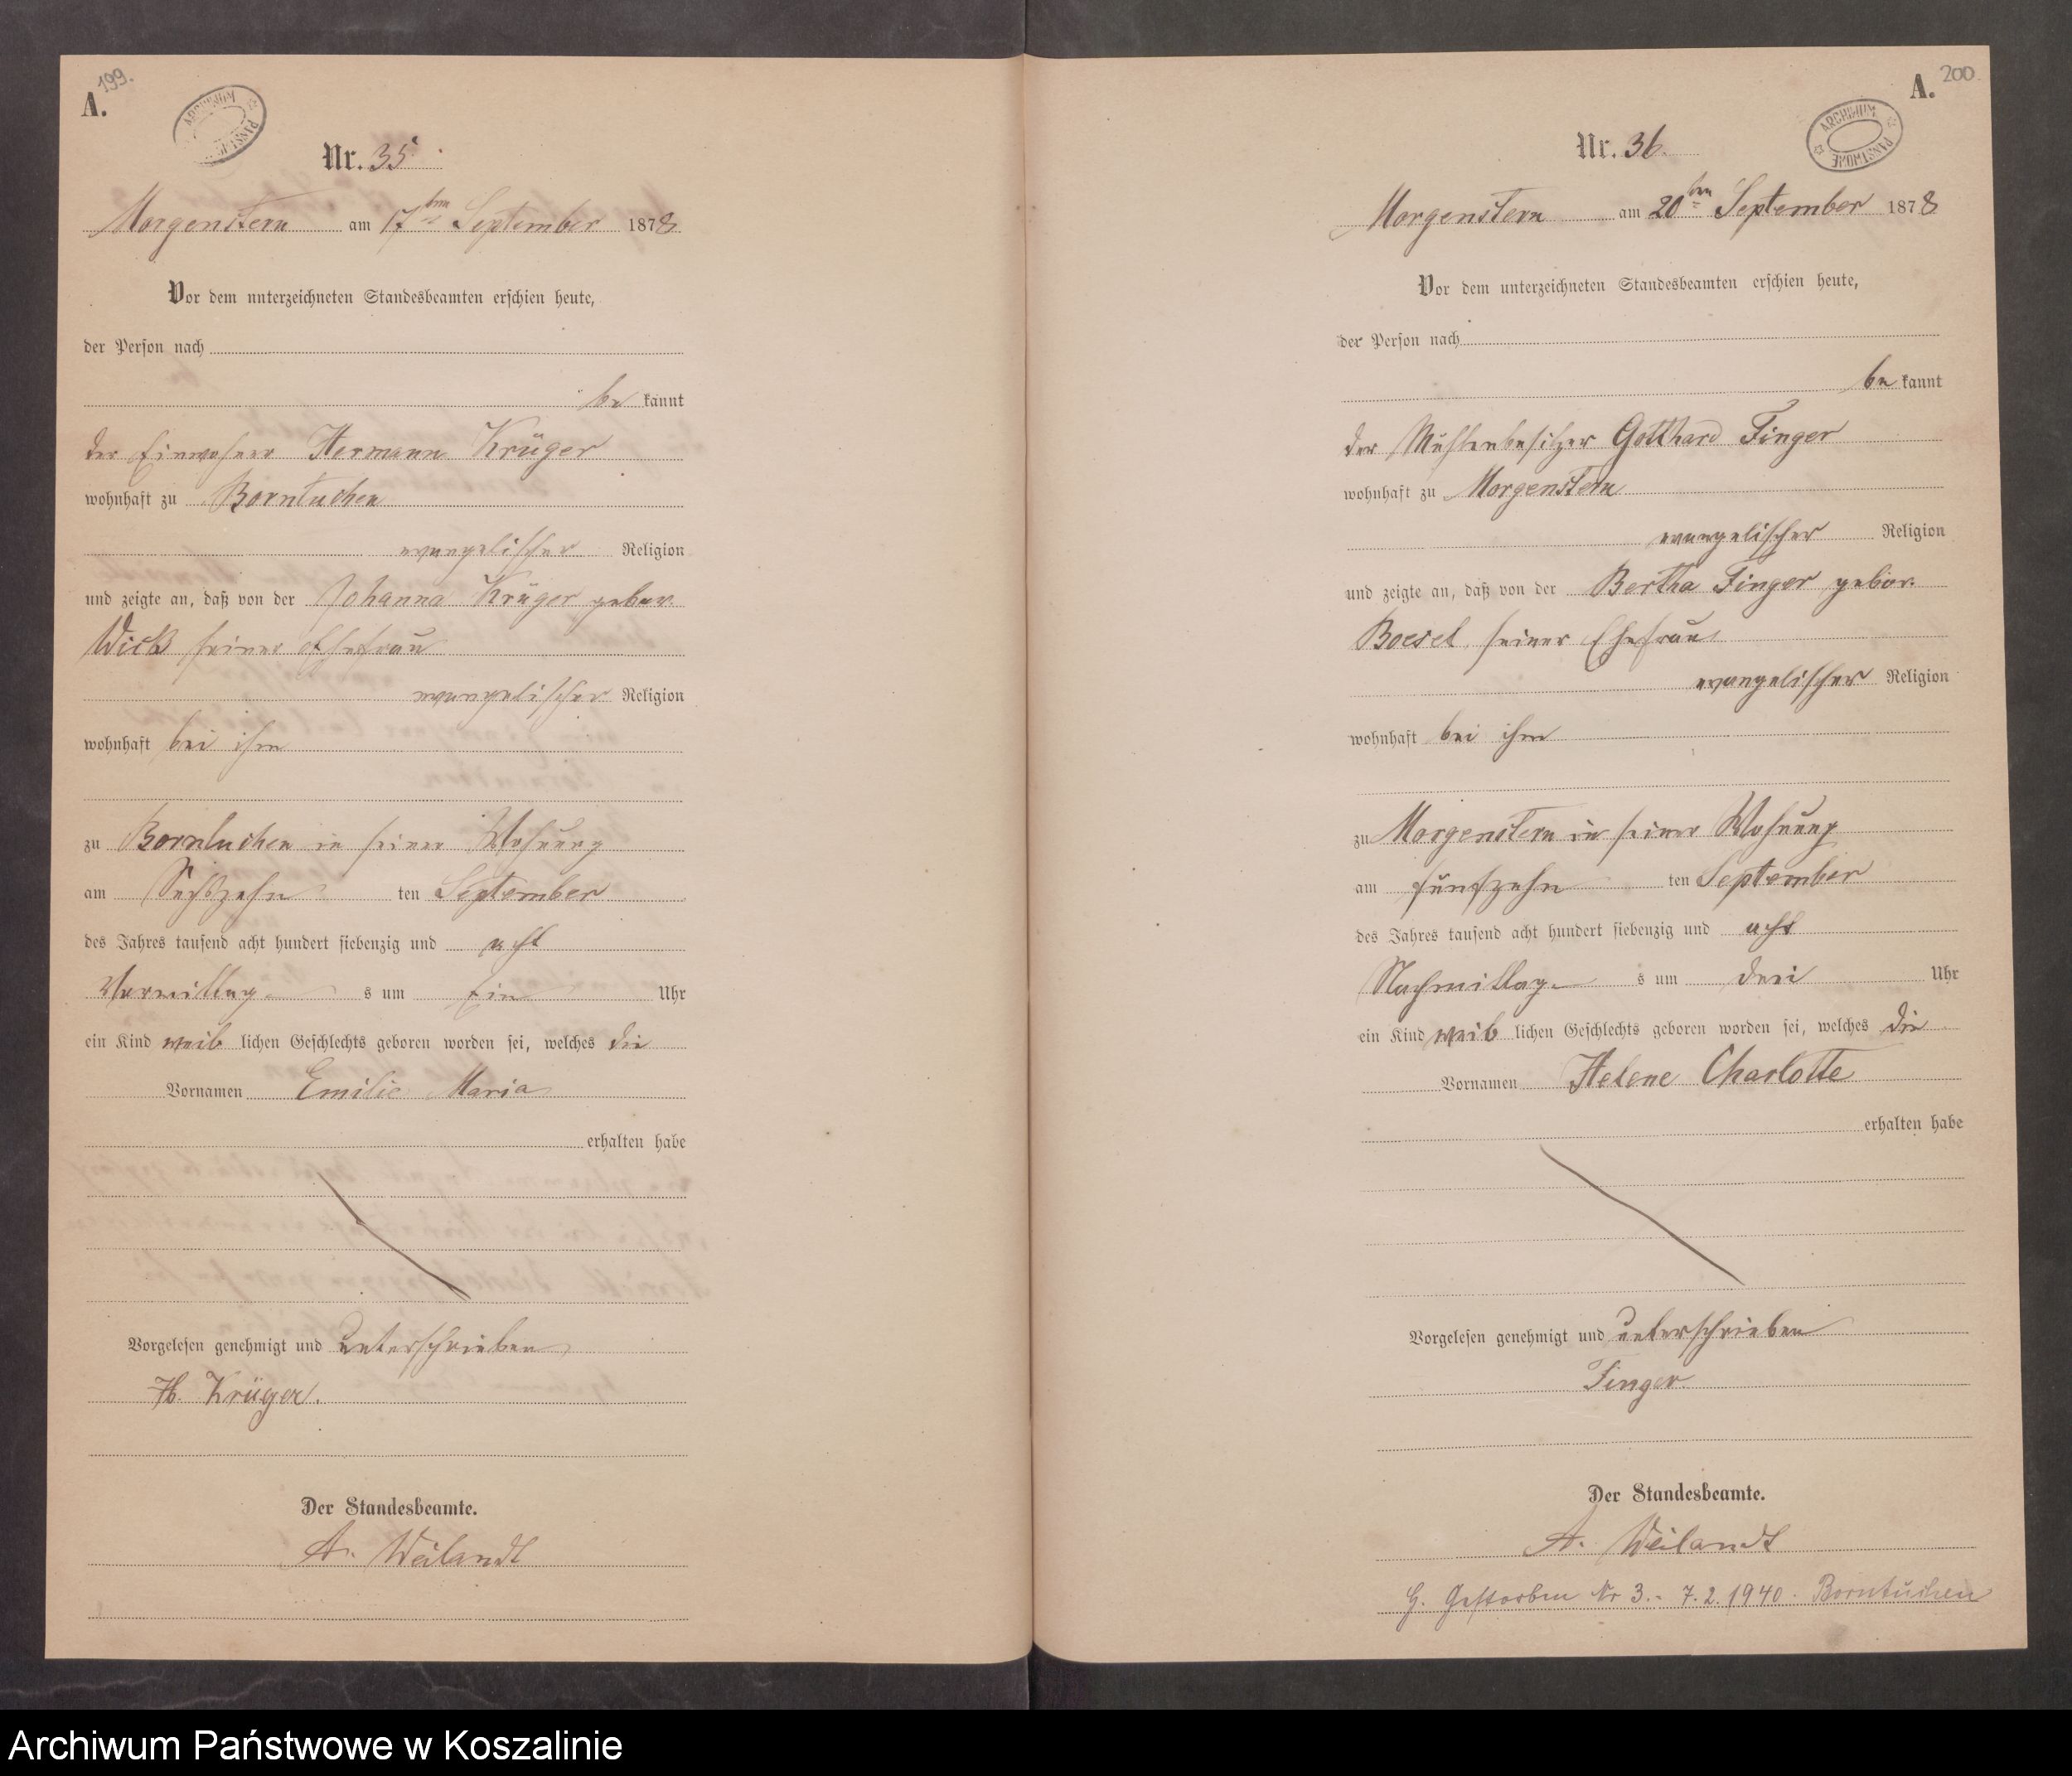 199.
A.
ARCHIWUM PAŃSTWOWE
Nr. 35
Morgenstern am 17ten September 1878
Vor dem unterzeichneten Standesbeamten erschien heute,
der Person nach
be kannt
der Einwohner Hermann Krüger
wohnhaft zu Borntuchen
evangelischer Religion
und zeigte an, daß von der Johanna Krüger gebor.
Wick seiner Ehefrau
evangelischer Religion
wohnhaft bei ihm
zu Borntuchen in seiner Wohnung
am Sechszehn ten September
des Jahres tausend acht hundert siebenzig und acht
Vormittag s um Ein Uhr
ein Kind weib lichen Geschlechts geboren worden sei, welches die
Vornamen Emilie Maria
erhalten habe
Vorgelesen genehmigt und unterschrieben
H. Krüger.
Der Standesbeamte.
A. Weilandt
200
A.
ARCHIWUM PAŃSTWOWE
Nr. 36.
Morgenstern am 20ten September 1878
Vor dem unterzeichneten Standesbeamten erschien heute,
der Person nach
be kannt
der Mühlenbesitzer Gotthard Finger
wohnhaft zu Morgenstern
evangelischer Religion
und zeigte an, daß von der Bertha Finger gebor.
Boesel seiner Ehefrau
evangelischer Religion
wohnhaft bei ihm
zu Morgenstern in seiner Wohnung
am fünfzehn ten September
des Jahres tausend acht hundert siebenzig und acht
Nachmittag s um drei Uhr
ein Kind weib lichen Geschlechts geboren worden sei, welches die
Vornamen Helene Charlotte
erhalten habe
Vorgelesen genehmigt und unterschrieben
Finger
Der Standesbeamte.
A. Weilandt
G. Gestorben Nr 3.- 7.2.1940. Borntuchen
Archiwum Państwowe w Koszalinie